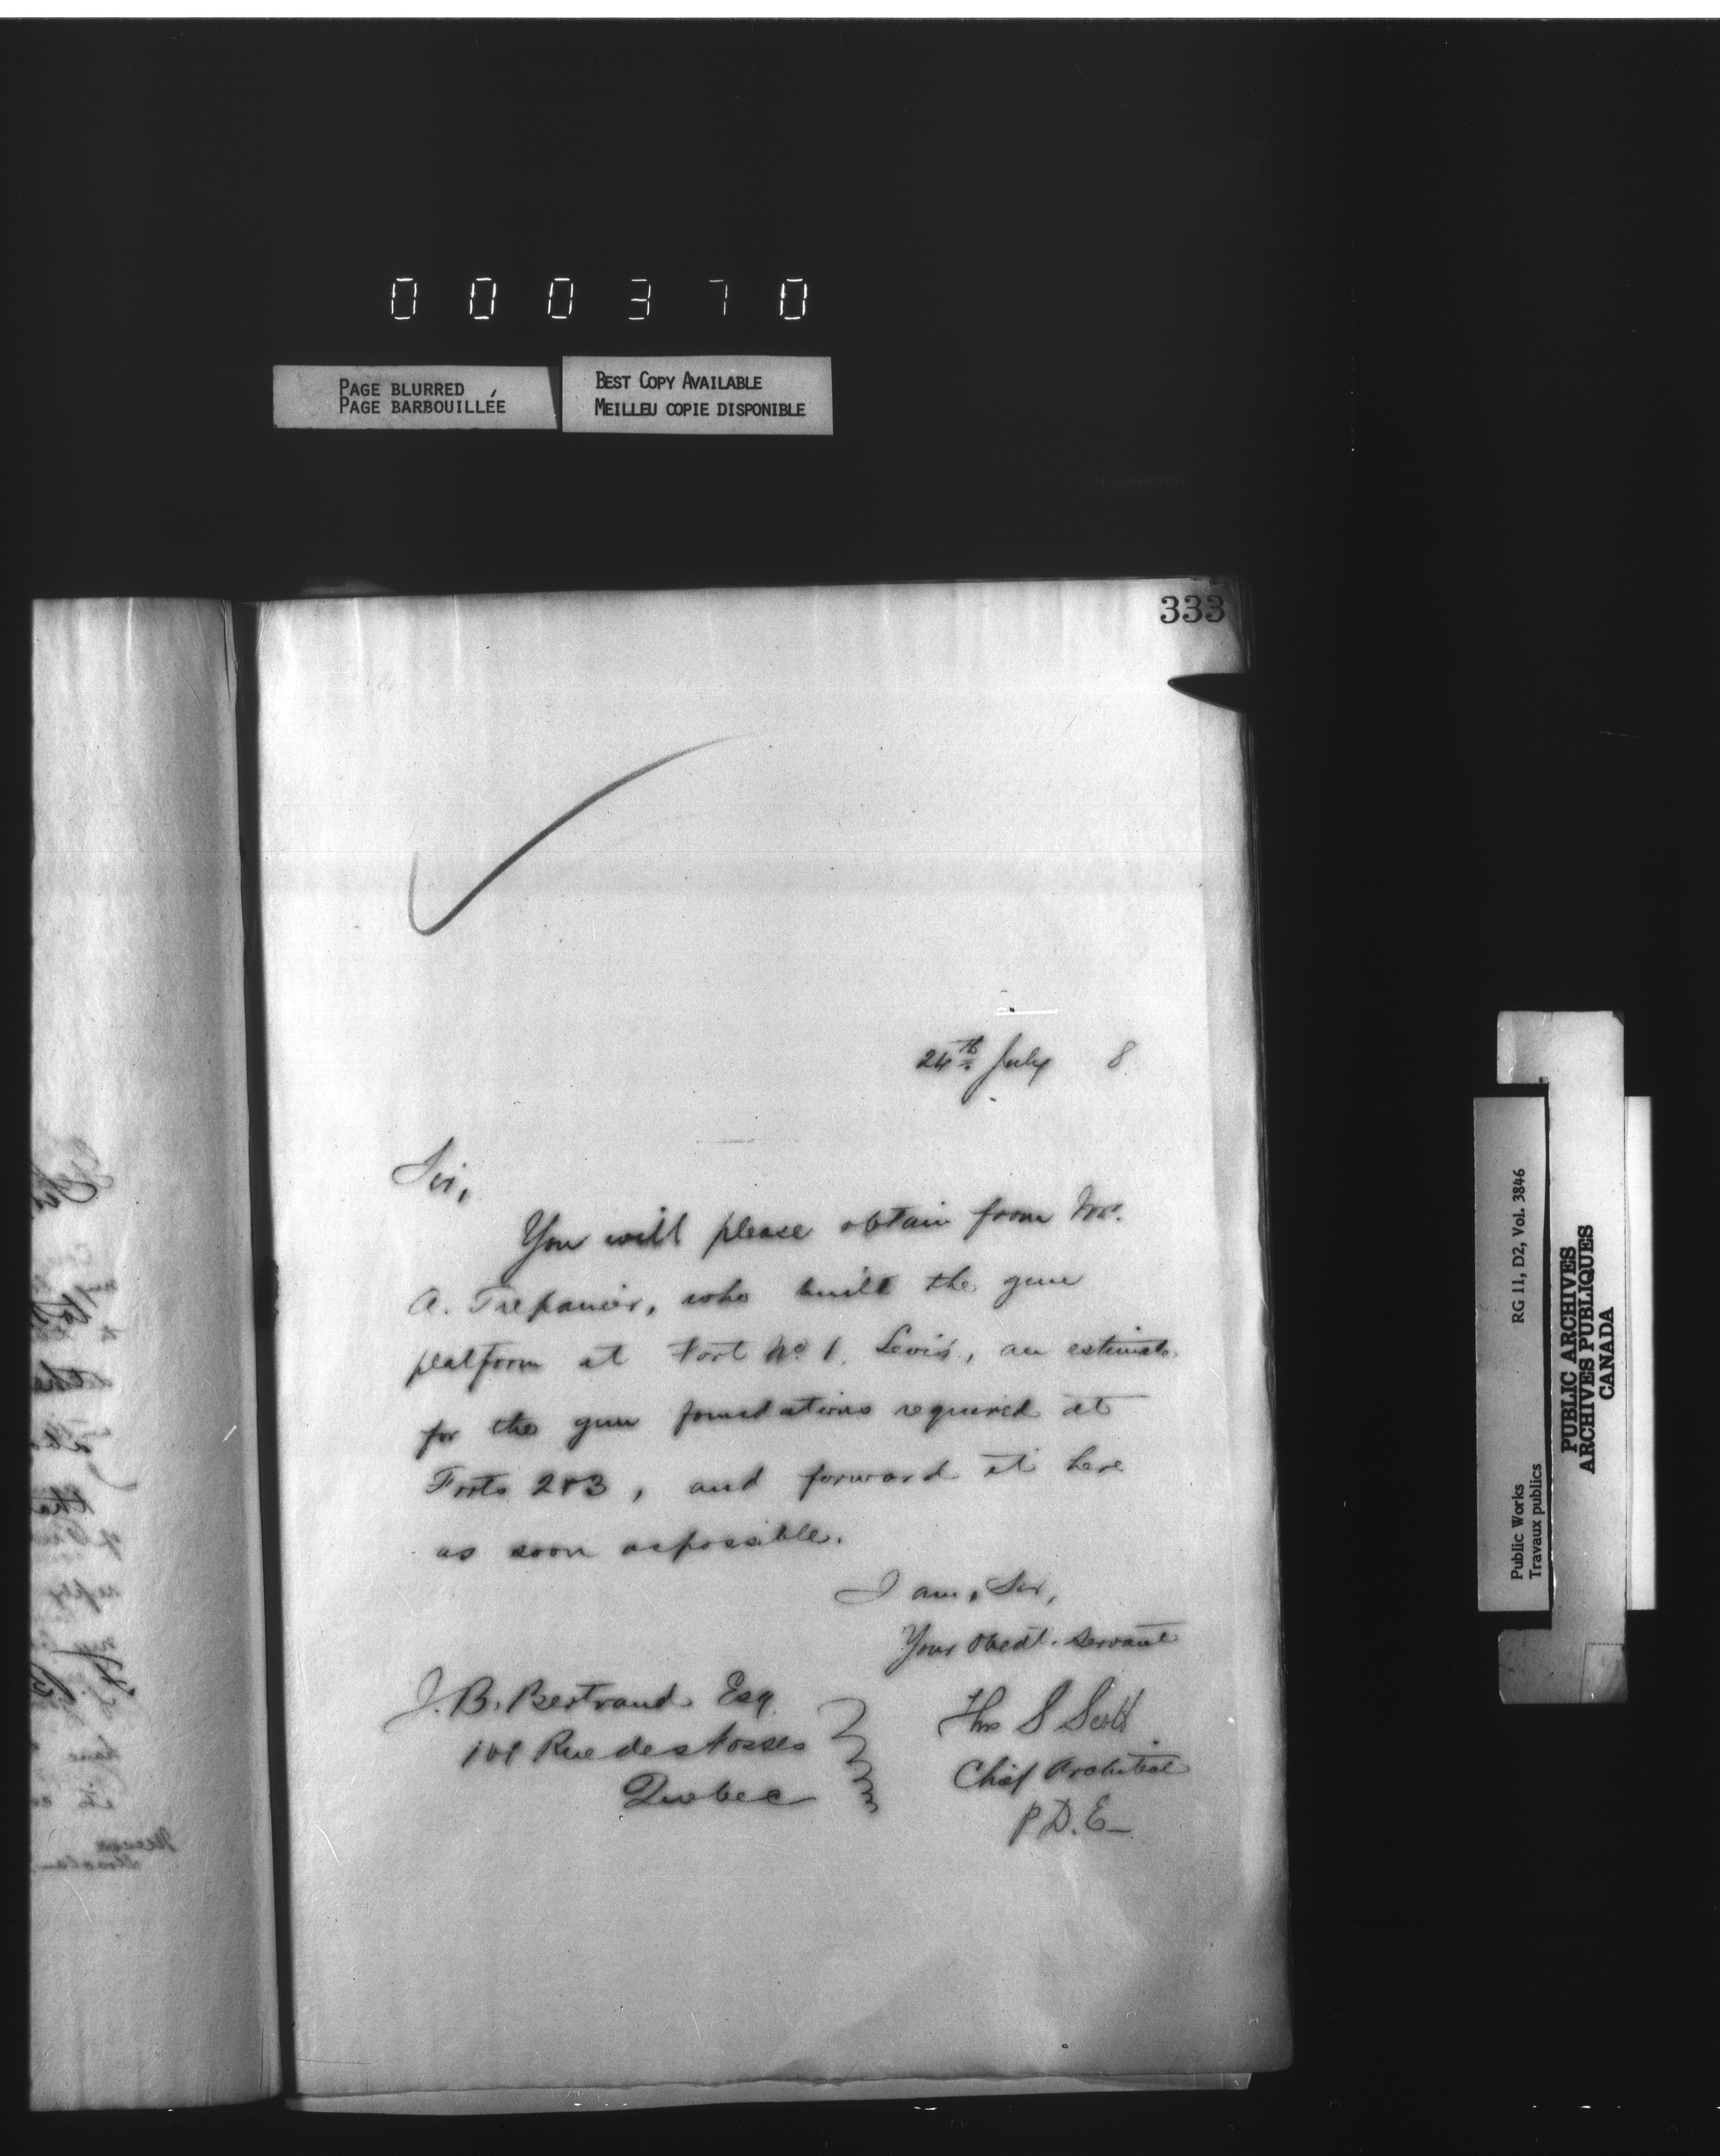 000370
PAGE BLURRED
PAGE BARBOUILLÉE
BEST COPY AVAILABLE
MEILLEU COPIE DISPONIBLE
333
24th July 8
Sir,
You will please obtain from Mr.
A. Trepanier, who built the gun
platform at Fort No 1. Levis, an estimate
for the gun foundations required at
Forts 2 & 3, and forward it here
as soon as possible.
I am, Sir,
Your Obedt. Servant
J. B. Bertrand Esq
Rue des Fosses
Quebec
Thos S Scott
Chief Architect
P.D.E
Public Works RG 11, D2, Vol. 3846
Travaux publics
PUBLIC ARCHIVES
ARCHIVES PUBLIQUES
CANADA